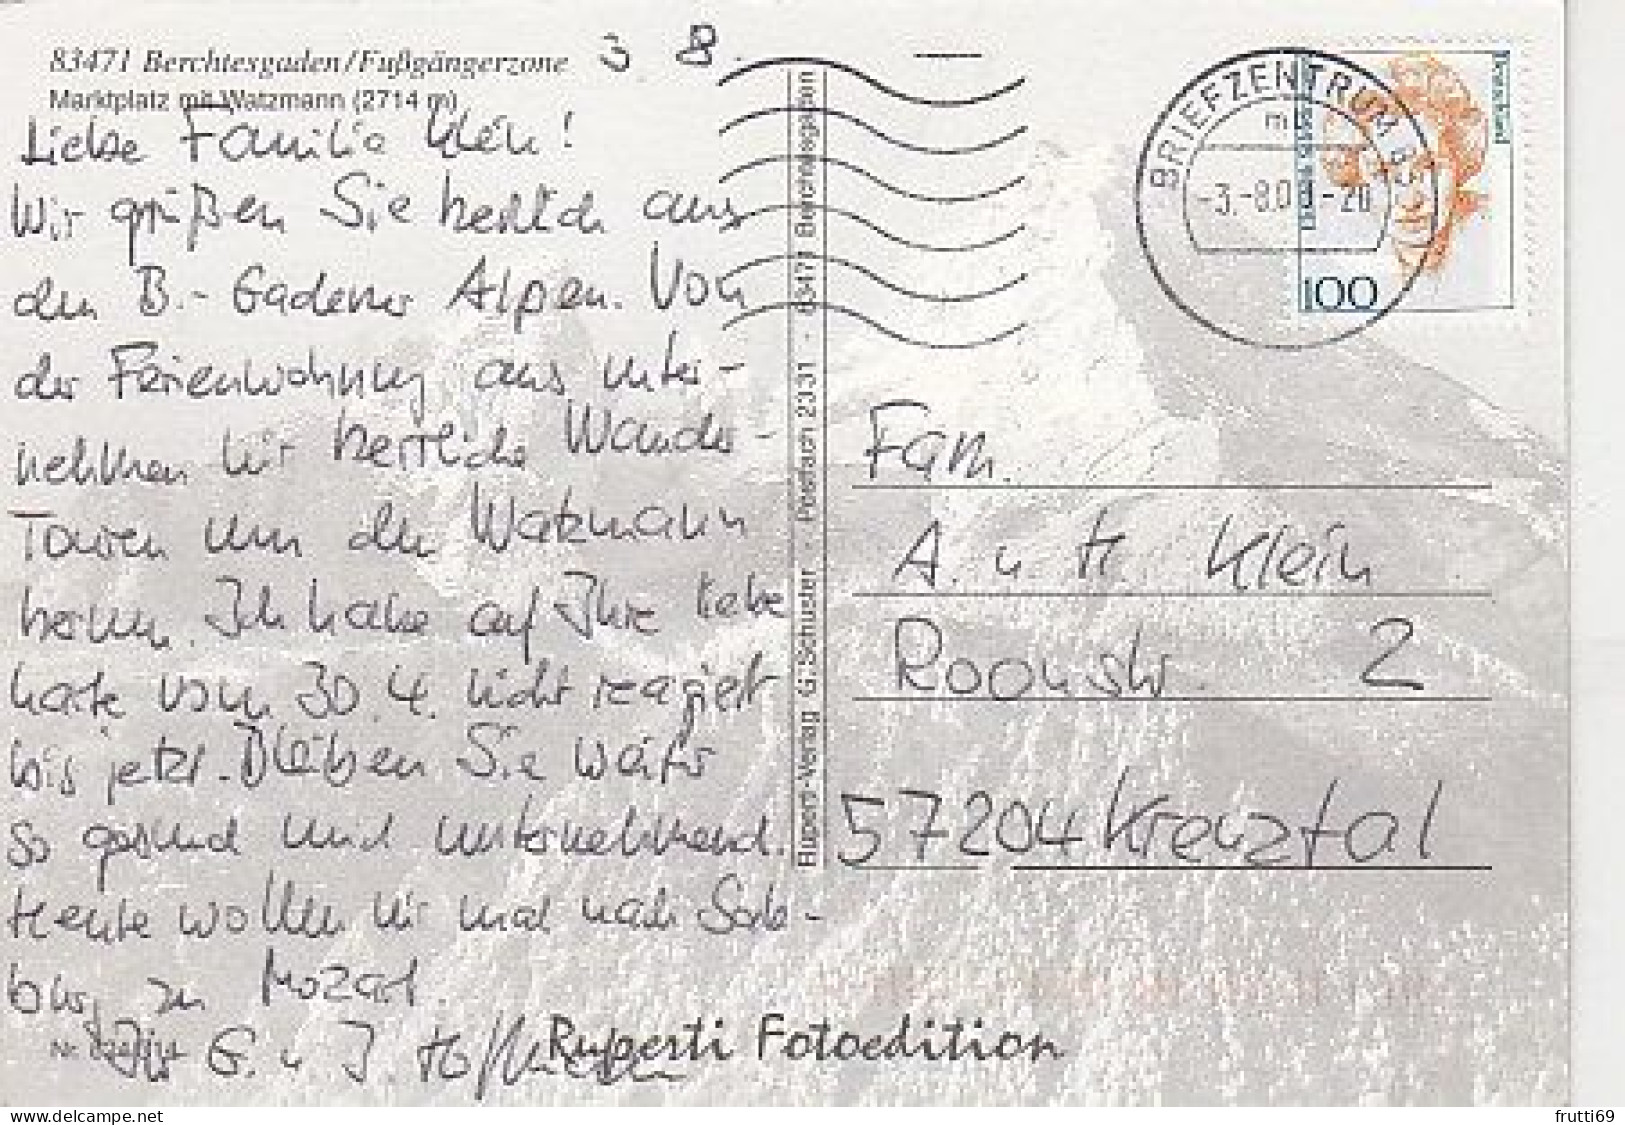 83471 Berchtesgaden/Fußgängerzone
Marktplatz mit Watzmann (2714 m)
3. 8. —
Liebe Familie Klein!
Wir grüßen Sie herzlich aus
den B.-Gadener Alpen. Von
der Ferienwohnung aus unter-
nehmen wir herrliche Wander-
Touren um den Watzmann
herum. Ich habe auf Ihre liebe
Karte vom 30.4. nicht reagiert
bis jetzt. Bleiben Sie weiter
so gesund und unternehmend.
Heute wollen wir mal nach Salz-
burg zu Mozart
Ihre G. u. J.
Nr.
Ruperti Fotoedition
Ruperti-Verlag G. Schuster - Postfach 2331 - 83471 Berchtesgaden
BRIEFZENTRUM 83
m
-3.-8.0
-20
Deutschland
100
Fam.
A. u. H. Klein
Roonstr. 2
57204 Kreuztal
frutti69